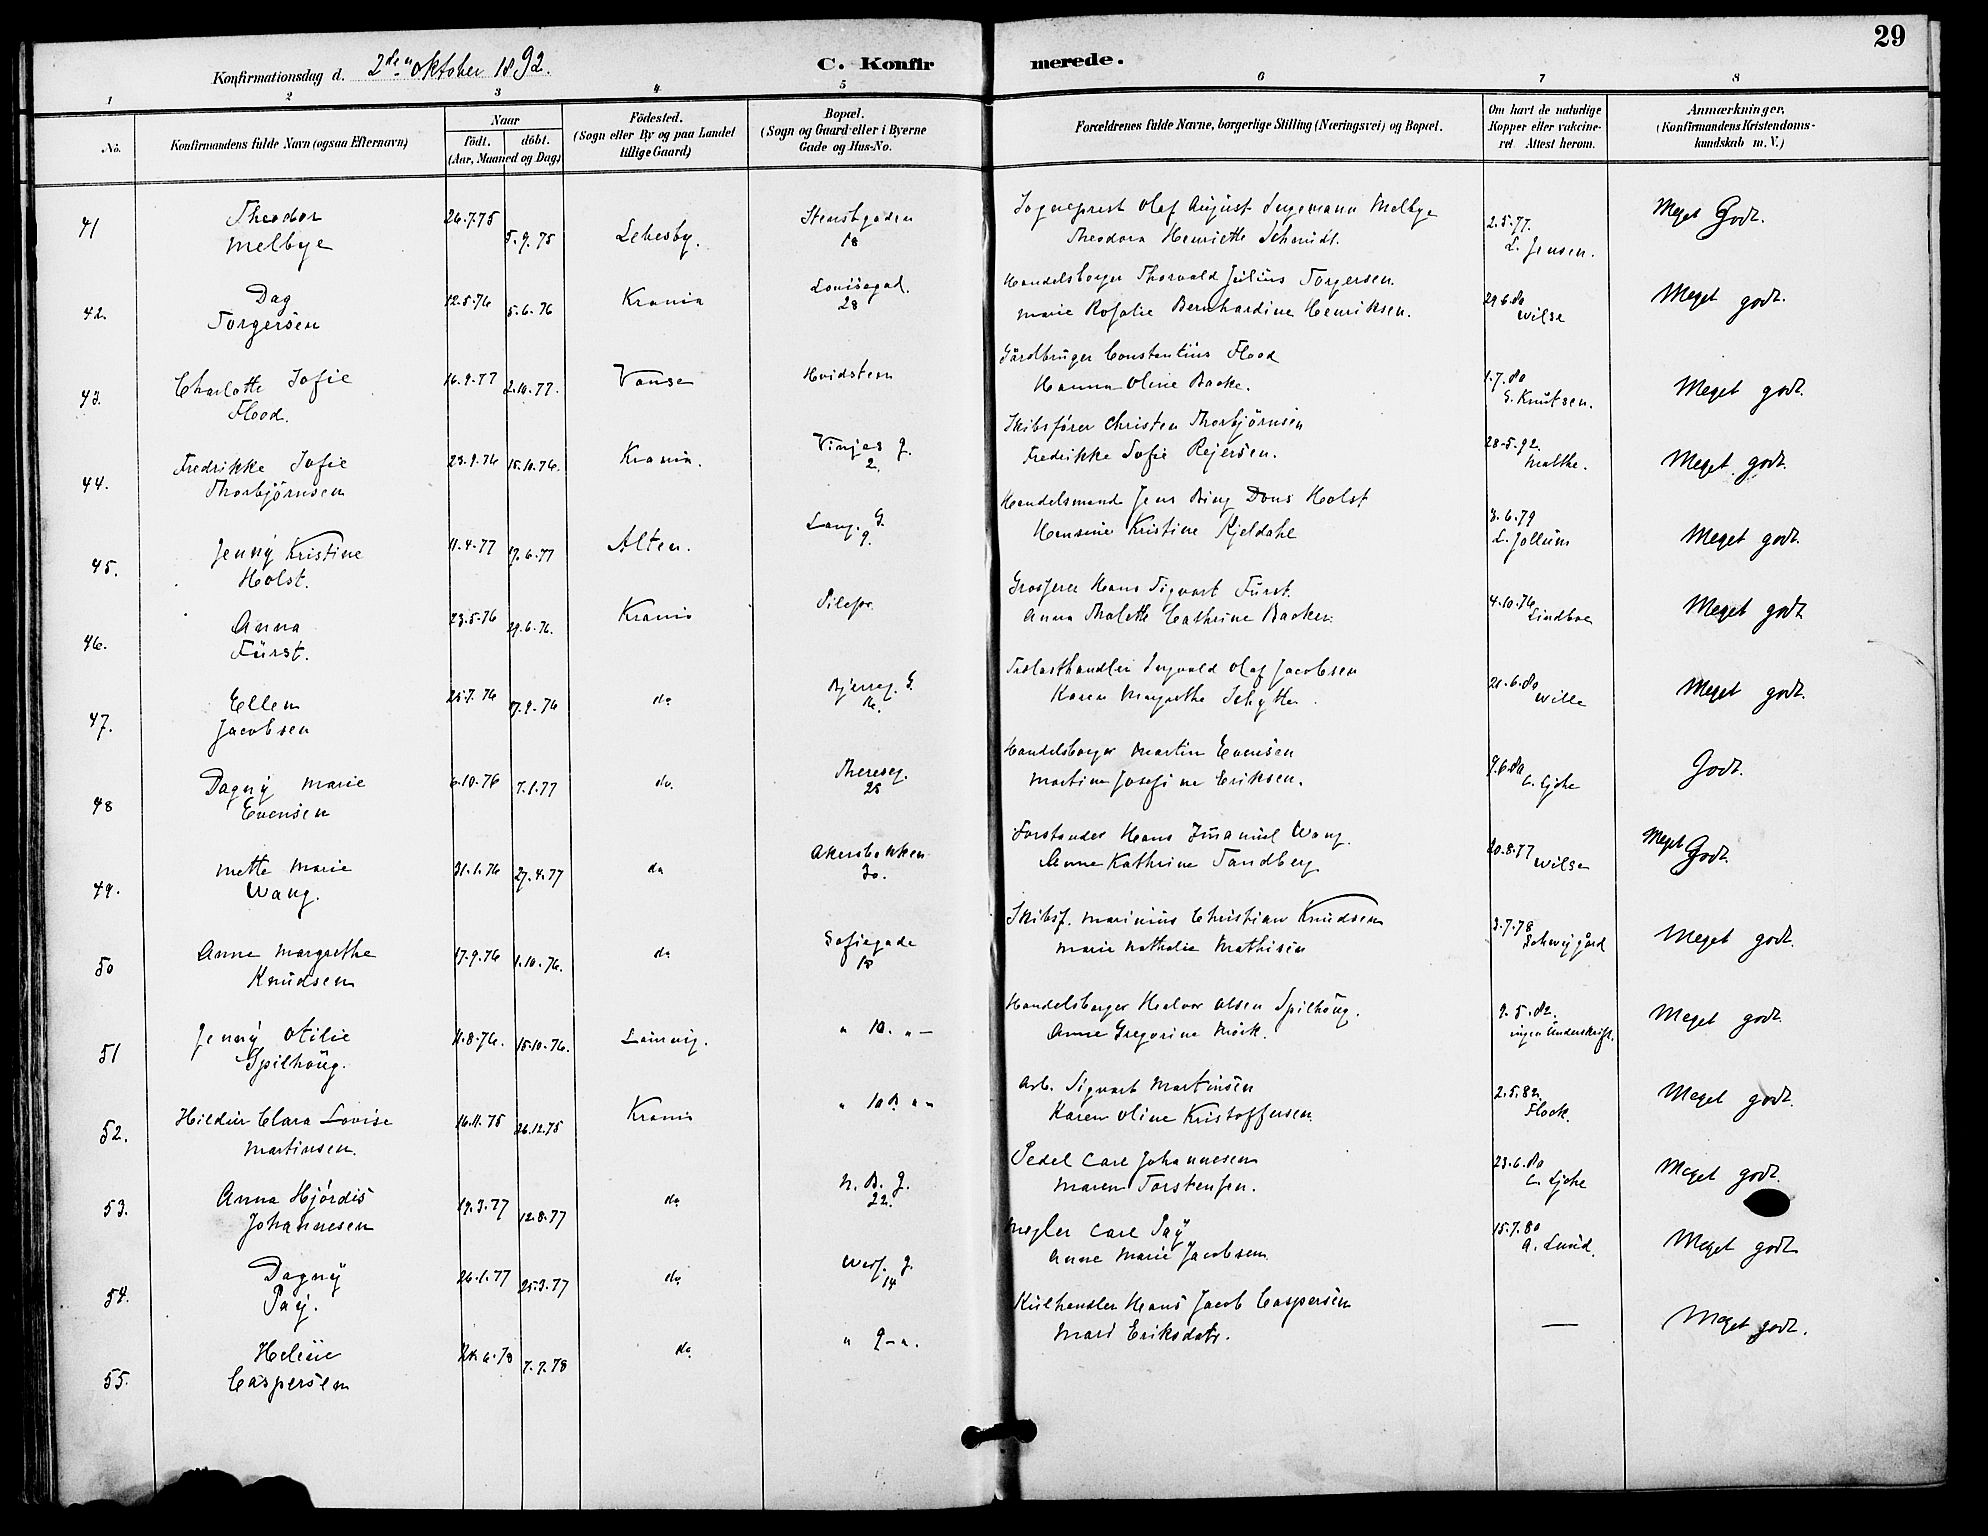 29
Konfirmationsdag d. 2den Oktober 1892.
C. Konfir merede.
1 2 3 4 5 6 7 8
No.
Konfirmandens fulde Navn (ogsaa Efternavn)
Naar
födt. döbt.
(Aar, Maaned og Dag)
Födested.
(Sogn eller By og paa Landet
tillige Gaard)
Bopæl.
(Sogn og Gaard eller i Byerne
Gade og Hus-No.
Forældrenes fulde Navne, borgerlige Stilling (Næringsvei) og Bopæl.
Om havt de naturlige
Kopper eller vakcine-
ret Attest herom.
Anmærkninger,
(Konfirmandens Kristendoms-
kundskab m. V.)
41 Theodor 26.7.75 Stensbgaden Sogneprest Olaf August Ingemann Melbye Meget Godt.
Melbye 5.9.75 Lebesby. 18 Theodora Henriette Schmidt. 2.5.77. L. Jensen.
42. Dag 12.5.76 5.6.76 Krania Louisegad. Handelsborger Thorvald Julius Torgersen. Meget godt.
Torgersen 28 Marie Rosalie Bernhardine Henriksen. 29.6.80 Wilse
43. Charlotte Sofie 16.9.77 2.10.77. Vanse Hvidsten Gårdbruger Constantius Flood Meget godt.
Flood. Hanna Oline Backe. 1.7.80 S. Knutsen.
44. Fredrikke Sofie 23.9.76 15.10.76. Krania. Vinjes g. Skibsfører Christen Thorbjørnsen Meget godt.
Thorbjørnsen 2. Fredrikke Sofie Rejersen. 28-5.92. Malthe.
45. Jenny Kristine 11.4.77 17.6.77 Alten. Lang. G. Handelsmand Jens Bing Dons Holst Meget godt.
Holst. 9. Hansine Kristine Kjeldahl 3.6.79 L. Jollum
46. Anna 23.5.76 29.6.76. Krania Pilestr. Grosserer Hans Sigvart Fürst. Meget godt
Fürst. Anna Thalette Cathrine Backer. 4.10.76 Lindboe
47. Ellen 25.7.76 17.9.76 do Bjerreg. G. Ingvald Olaf Jacobsen Meget godt.
Jacobsen 16. Karen Margrethe Schytte. 21.6.80 Wille
48 Dagny Marie 6.10.76 7.1.77 do. Thereseg. Handelsborger Martin Evensen Godt.
Evensen 25 Martine Josefine Eriksen. 9.6.80 C. Ljche
49. Mette Marie 31.1.76 27.4.77 do Akersbakken Forstander Hans Imanuel Wang. Meget Godt.
Wang. 30. Anne Kathrine Tandberg 20.8.77 Wilse
50 Anne Margrethe 17.9.76 1.10.76. do Sofiegade Skibsf. Marinius Christian Knudsen Meget godt.
Knudsen 18 Marie Nathalie Mathisen 3.7.78 Schweigård
51 Jenny Otilie 11.8.76. 15.10.76. Laurvig. " 10. " — Handelsborger Halvor Olsen Spilhaug. Meget godt.
Spilhaug. Anne Gregorine Mørk. 9.5.82. ingen Underskrift.
52. Hildur Clara Lovise 16.11.75 26.12.75 Krania " 10 B. " " Arb. Sigvart Martinsen Meget godt.
Martinsen. Karen Oline Kristoffersen. 2.5.82. Flock.
53. Anna Hjördis 19.3.77 12.8.77 do N. B. g. Pedel Carl Johannesen Meget godt.
Johannesen 22. Maren Torstensen. 23.6.80 C. Ljche
54. Dagny 26.1.77 25.3.77 do g. Megler Carl Paÿ Meget godt
Paÿ. 14 Anne Marie Jacobsen 15.7.80 A. Lund.
55. Helene 6.78 7.7.78 do. " 9 – ". Kulhandler Hans Jacob Caspersen — Meget godt.
Caspersen Mari Eriksdatr.